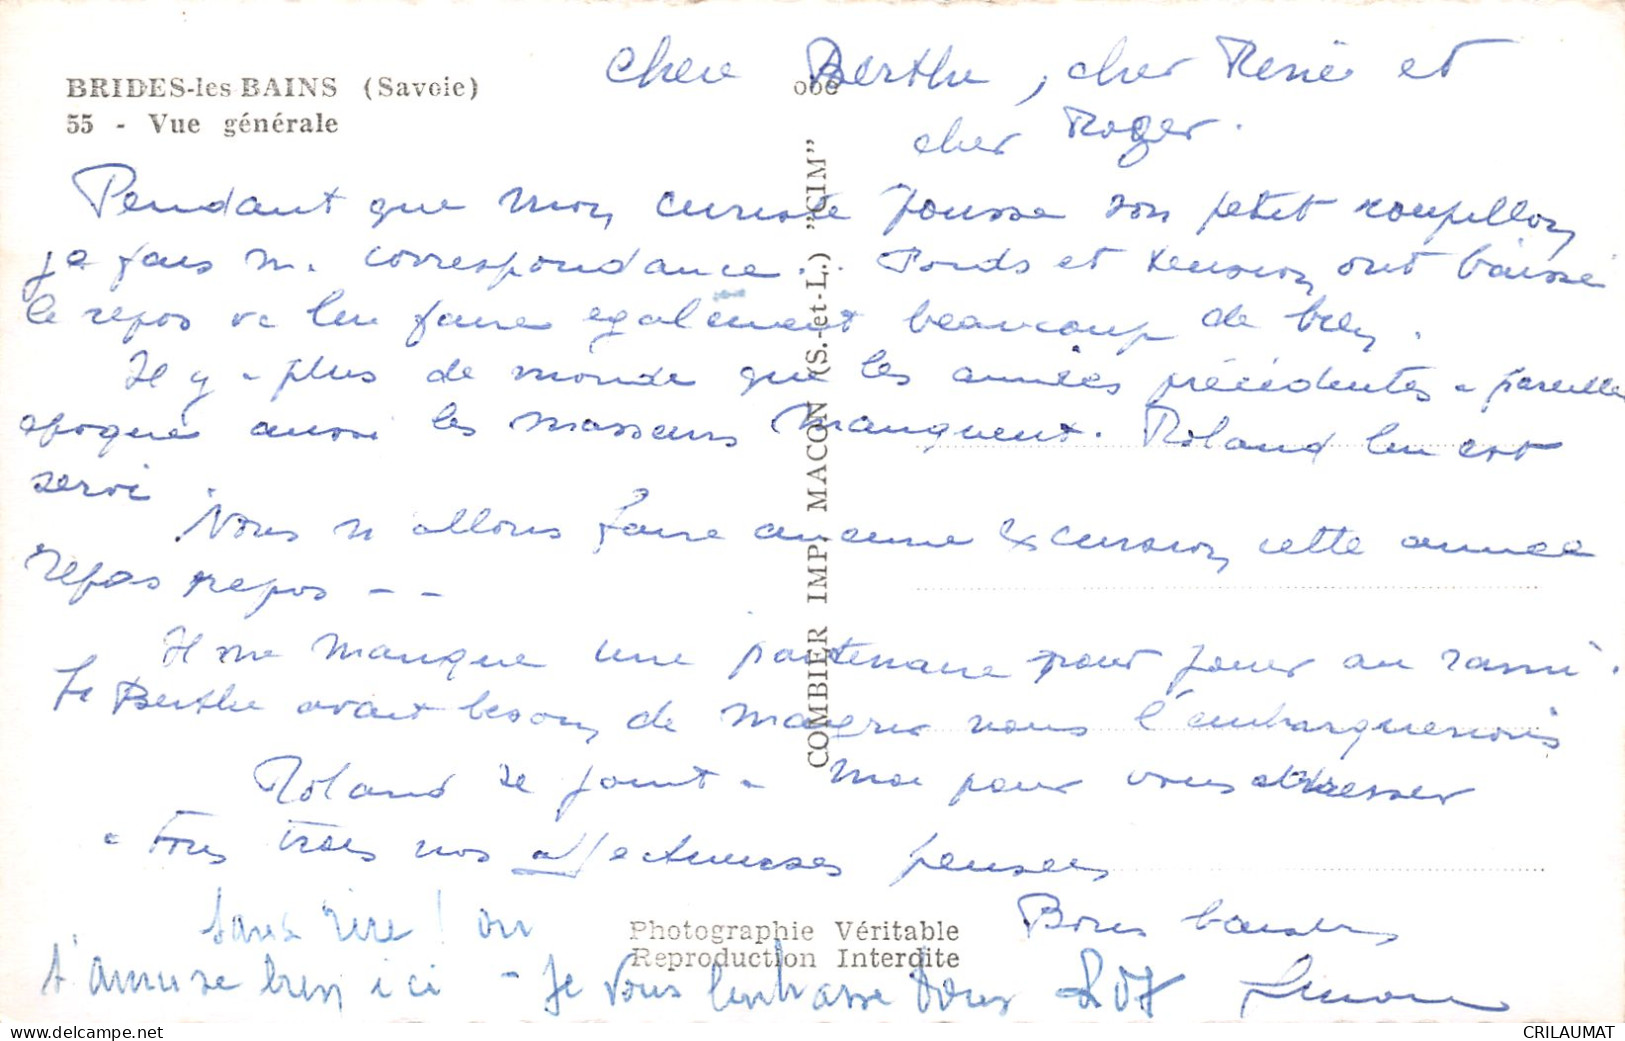 BRIDES-les-BAINS (Savoie)
55 - Vue générale
Chere Berthe, cher René et
cher Roger.
Pendant que mon curiste pousse son petit roupillon
je fais m. correspondance. Poids et tension ont baissé
le repos va leu faire egalement beaucoup de bien.
Il y a plus de monde que les années précédentes a pareille
epoque aussi les masseurs manquent. Roland leu est
servi.
Nous n allons faire aucune excursion cette année
repos repos - -
Il me manque une partenaire pour jouer au rami.
Si Berthe avait besoin de maigrir nous l'embarquerions
Roland se joint a moi pour vous adresser
a tous trois nos affectueuses pensées
Bons baisers
Sans rire ! on
s'amuse bien ici - Je vous embrasse tous
Simone
Photographie Véritable
Reproduction Interdite
COMBIER IMP. MACON (S.-et-L.) "CIM"
CRILAUMAT